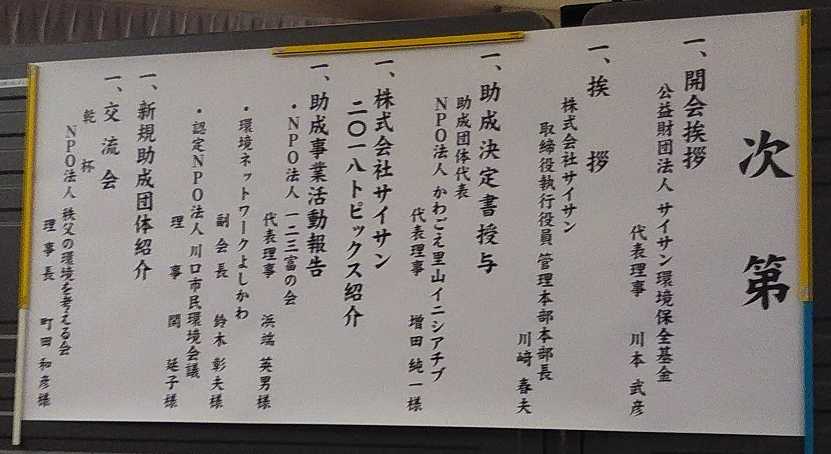 次第
一、開会挨拶
公益財団法人 サイサン環境保全基金
代表理事 川本 武彦
一、挨拶
株式会社サイサン
取締役執行役員 管理本部本部長
川﨑 春夫
一、助成決定書授与
助成団体代表
NPO法人 かわごえ里山イニシアチブ
代表理事 増田 純一様
一、株式会社サイサン
二〇一八トピックス紹介
一、助成事業活動報告
・NPO法人 一二三富の会
代表理事 浜端 英男様
・環境ネットワークよしかわ
副会長 鈴木 彰夫様
・認定NPO法人 川口市民環境会議
理事 関 延子様
一、新規助成団体紹介
一、交流会
乾杯
NPO法人 秩父の環境を考える会
理事長 町田 和彦様